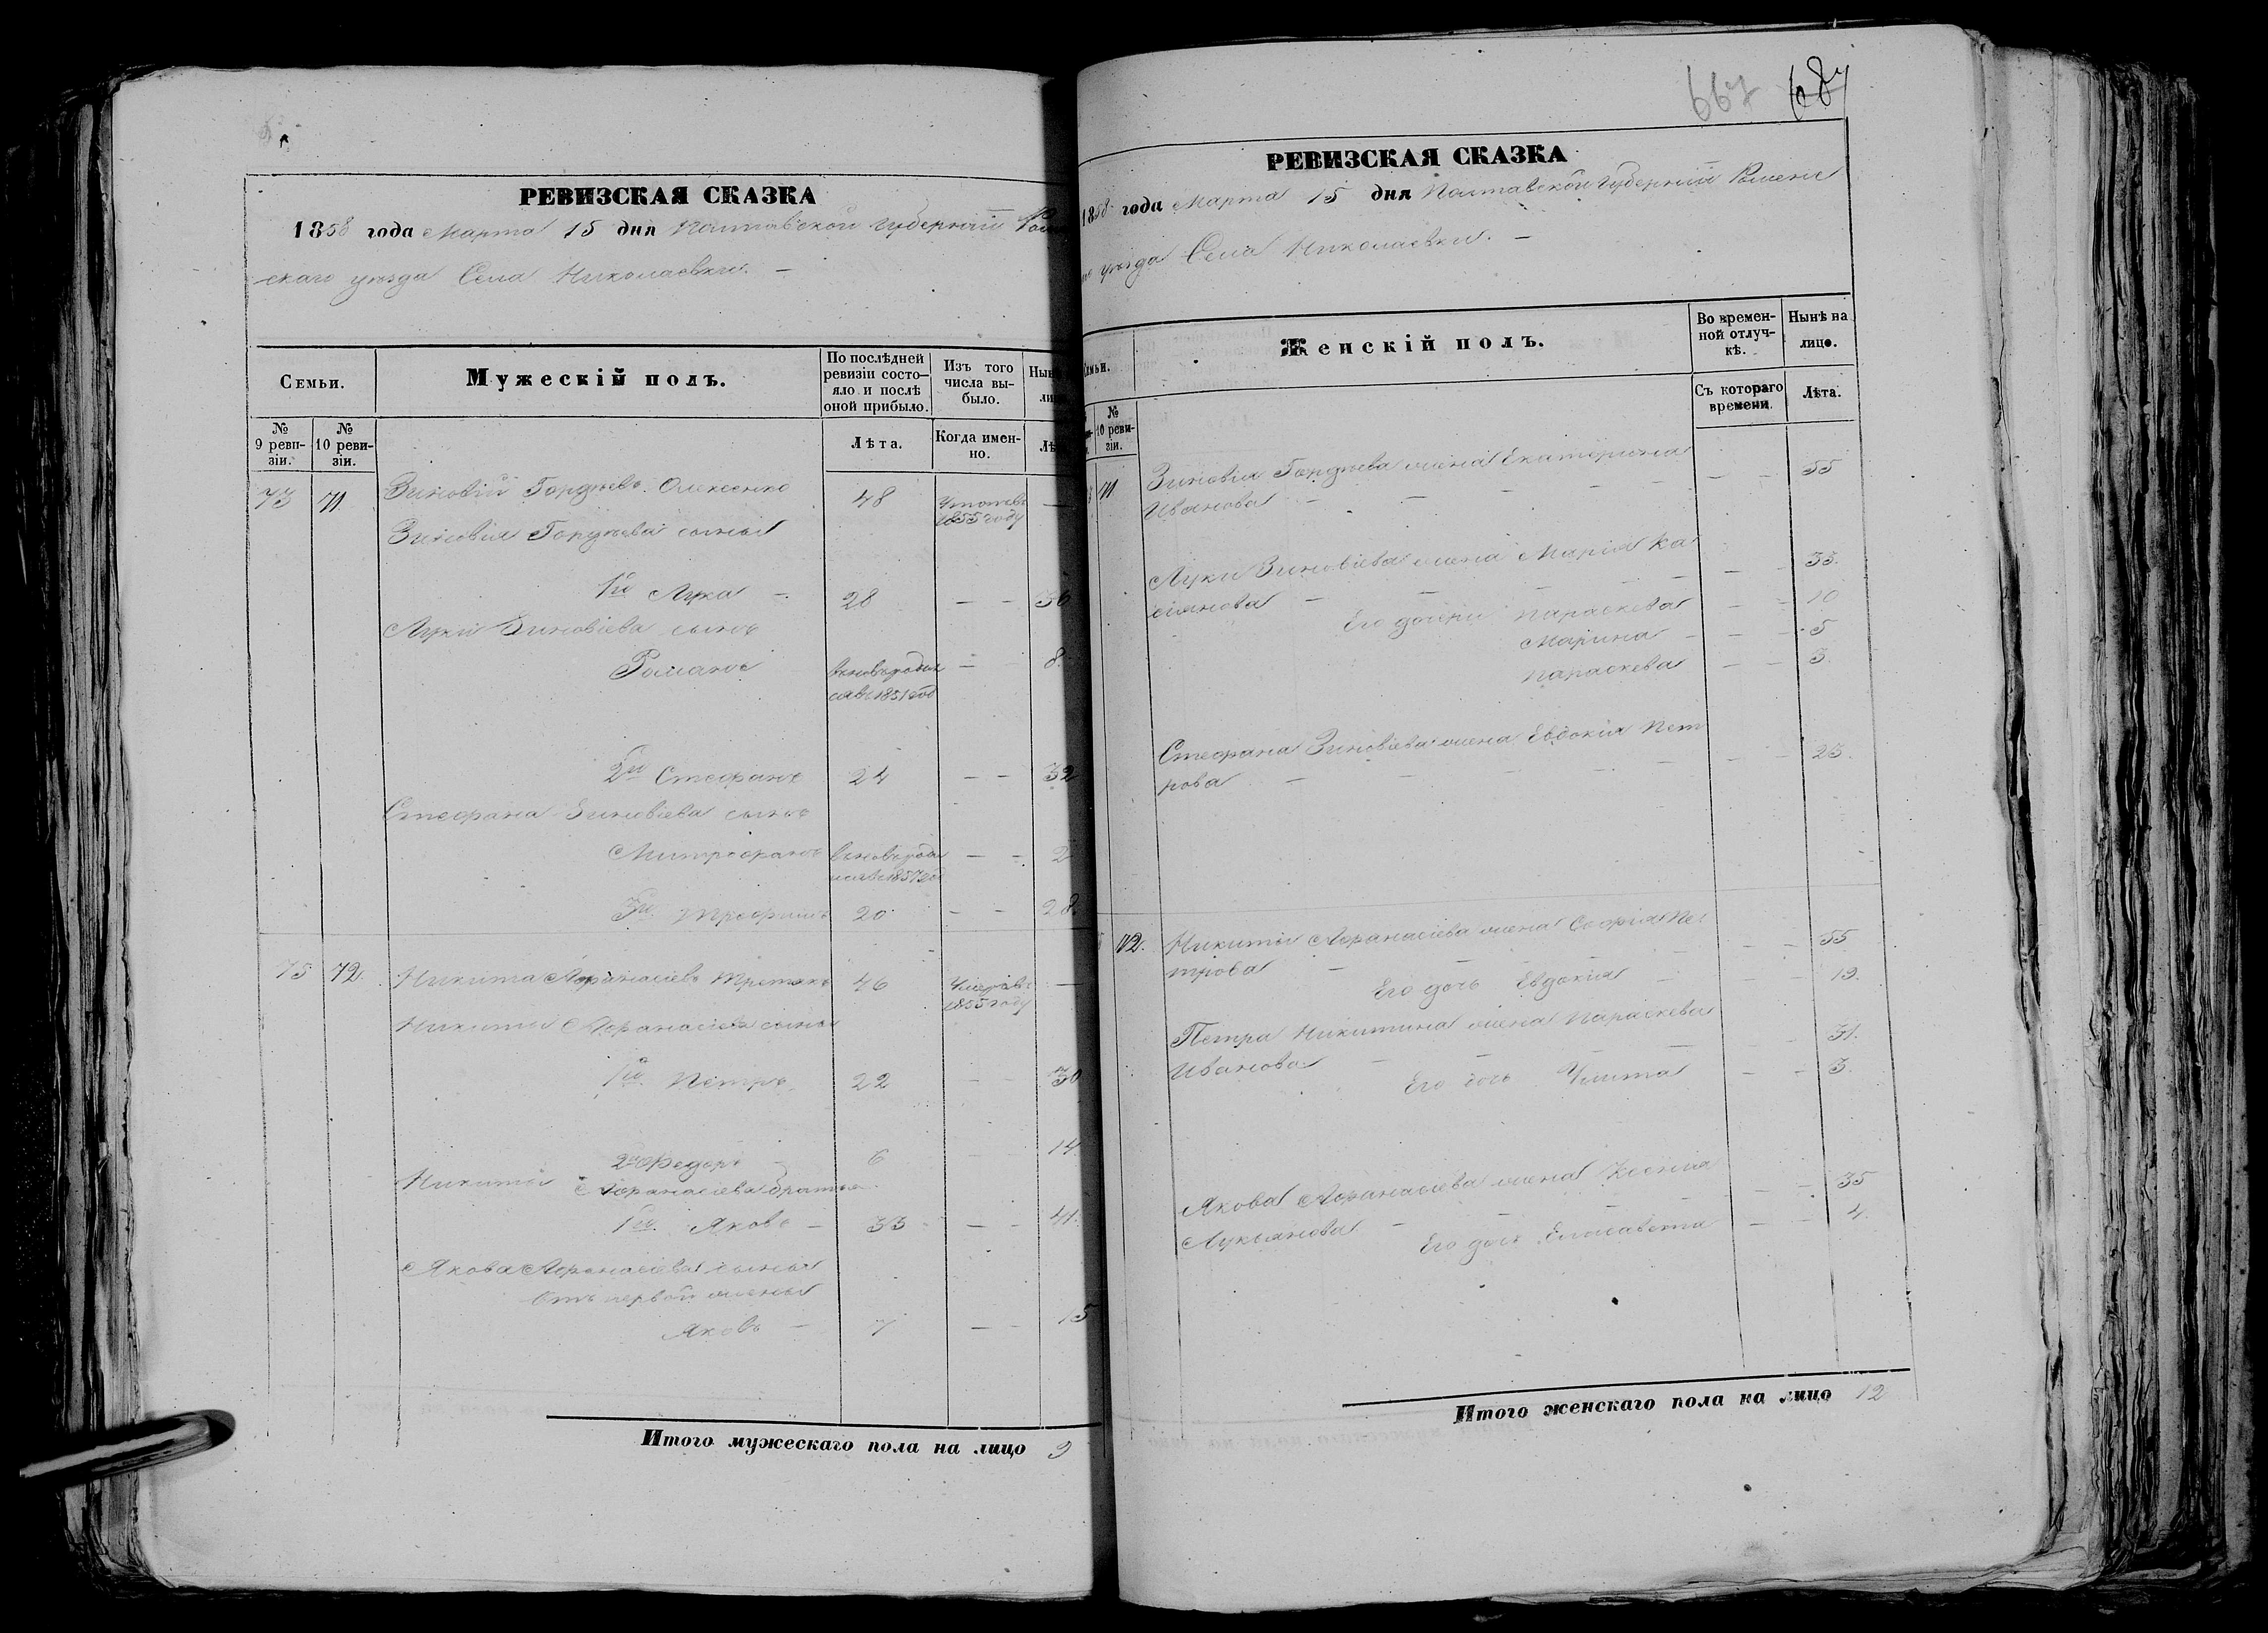 РЕВИЗСКАЯ СКАЗКА
1858 года Марта 15 дня Полтавской Губерніи Ромен
скаго уѣзда Села Николаевки. —
Семьи.
Мужескій полъ.
По послѣдней ревизіи состо-
яло и послѣ
оной прибыло.
Изъ того
числа вы-
было.
№
9 реви-
зіи.
№
10 реви-
зіи.
Лѣта.
Когда имен-
но.
73 71 Зиновій Гордѣевъ Олексенко 48
1855 году
Зиновія Гордѣева сыны
1й Лука — 28 — — 36
Луки Зиновіева сынъ
Романъ вновьродил — 8.
ся въ 1851 год
2й Стефанъ 24 — — 32
Стефана Зиновіева сынъ
Митрофанъ вновьродил — — 2
ся въ 1857 год
3й Трофимъ 20 — — 28.
75 72 Никита Афанасіевъ Третякъ 46 Умеръ въ —
1855 году
Никиты Афанасіева сыны
1й Петръ 22 — — 30
2й Федоръ — 6 — — 14
Никиты Афанасіева братья
1й Яковъ — 33 — — 41.
Якова Афанасіева сыны
Отъ первой жены
Яковъ — 7 — — 15
Итого мужескаго пола на лицо 9
667 687
РЕВИЗСКАЯ СКАЗКА
1858 года Марта 15 дня Полтавской Губерніи Ромен
уѣзда Села Николаевки. —
Семьи.
Женскій полъ.
Во времен-
ной отлуч-
кѣ.
Нынѣ на
лицо.
№
10 реви-
зіи.
Съ котораго
времени.
Лѣта.
71 Зиновія Гордѣева жена Екатерина — — 55
Иванова
Луки Зиновіева жена Марія Ка- — — 35.
сіянова
Его дочери Параскева — — 10
Марина — — — 5
Параскева — — 3.
Стефана Зиновіева жена Евдокія Пет — — 25.
рова
72. Никиты Афанасіева жена Софія Пе- — — 55
трова
Его дочь Евдокія — — 19.
Петра Никитина жена Параскева — 31.
Иванова
Его дочь Улита — — 3.
Якова Афанасіева жена Ксенія — — 35
Лукьянова
Его дочь Елисавета — — 4.
Итого женскаго пола на лицо 12